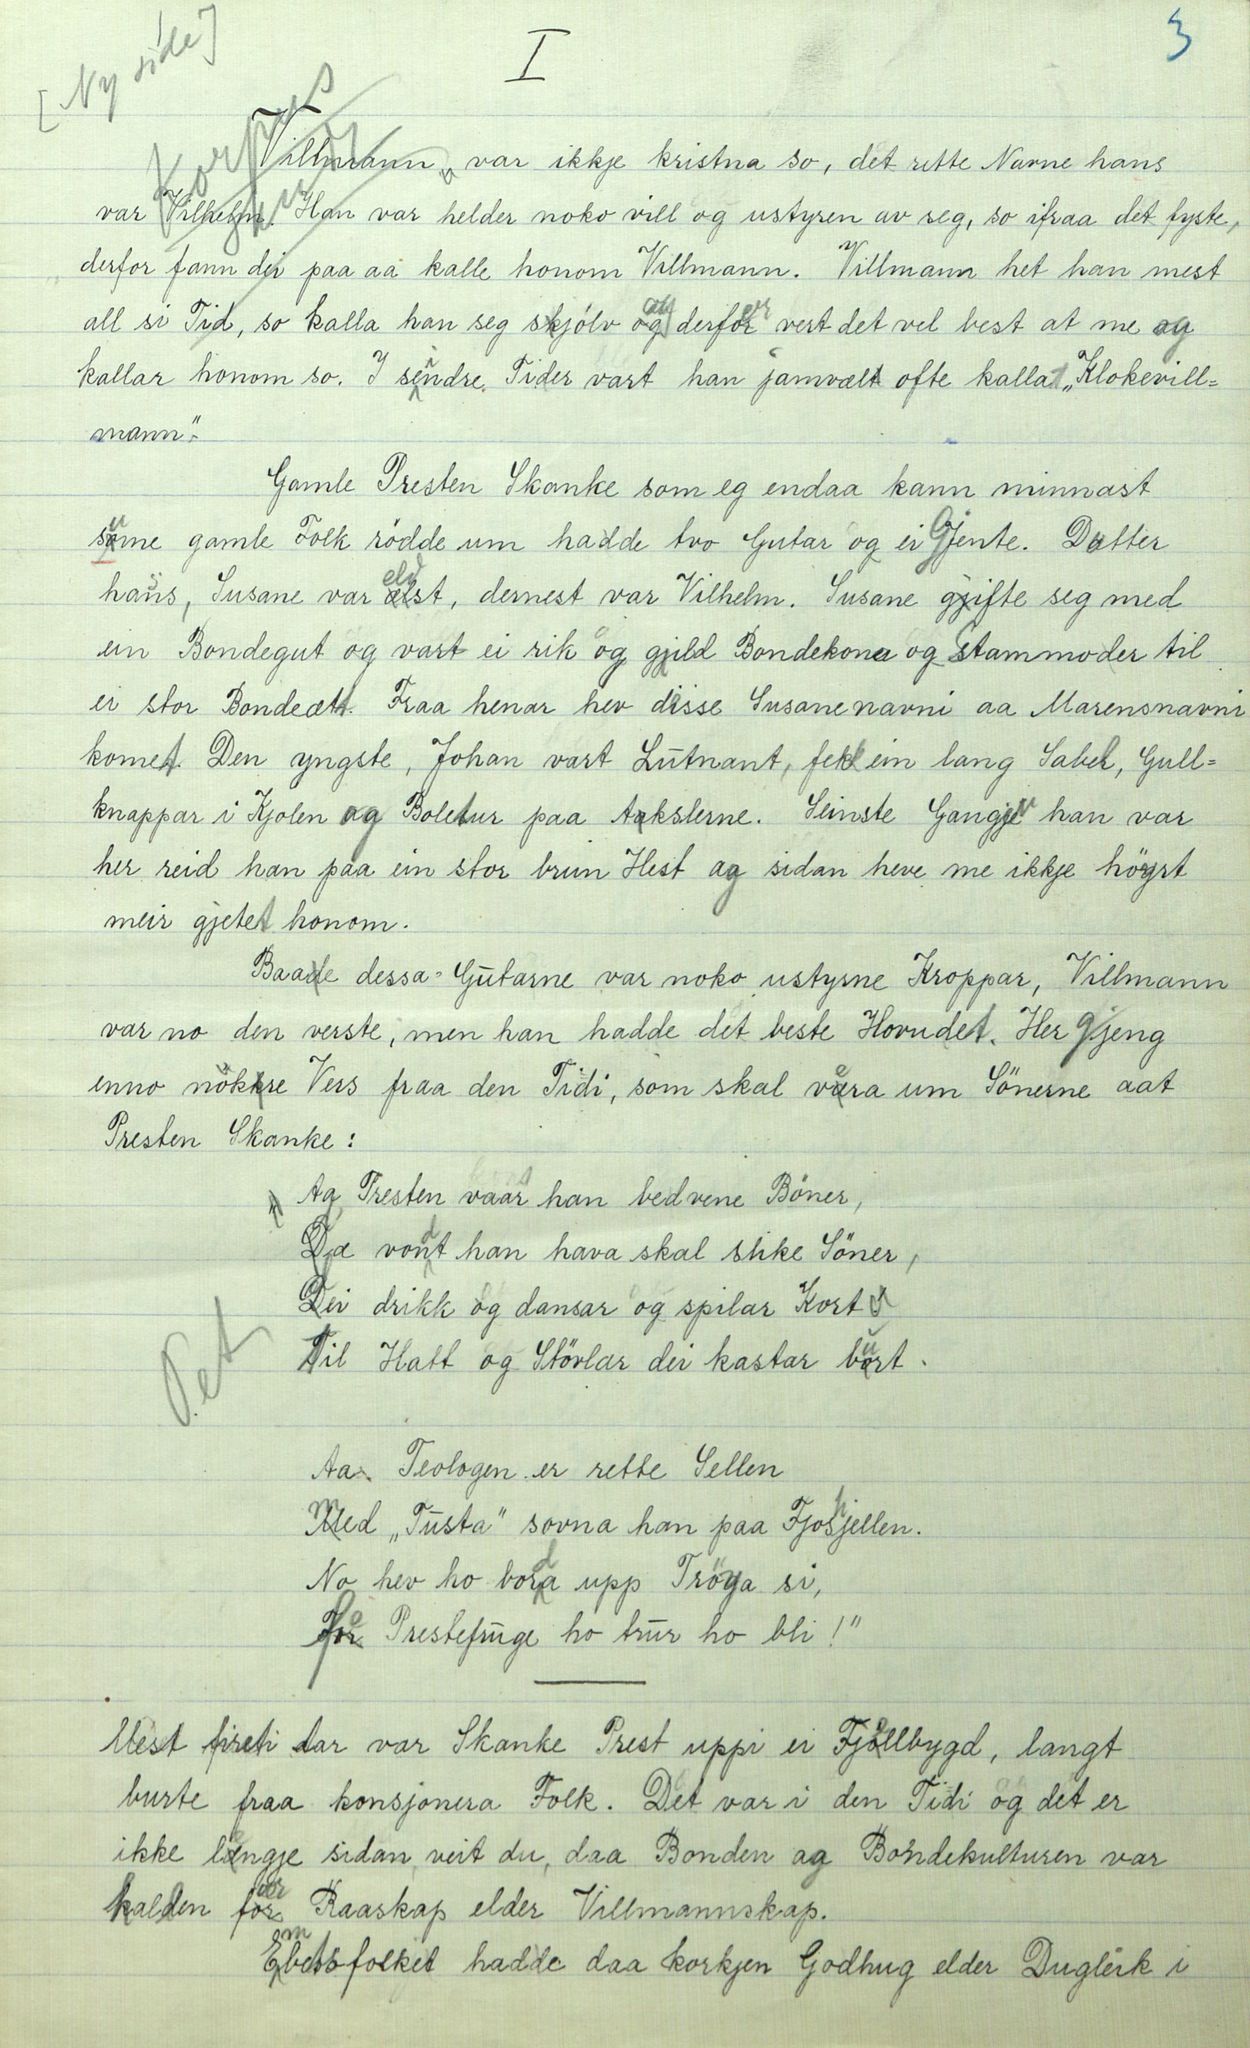 [Ny side]
I
3
Korpus
Villmann, var ikkje kristna so, det rette Navne hans
var Vilhelm. Han var helder noko vill og ustyren av seg, so ifraa det fyste,
derfor fann dei paa aa kalle honom Villmann. Villmann het han mest
all si Tid, so kalla han seg skjölv og derfor vert det vel best at me og
kallar honom so. I sendre Tider vart han jamvælt ofte kallat „Klokevill=
mann“.
Gamle Presten Skanke som eg endaa kann minnast
sume gamle Folk rödde um hadde tvo Gutar og ei Gjente. Dotter
hans, Susane var eldst, dernest var Vilhelm. Susane gjifte seg med
ein Bondegut og vart ei rik og gjild Bondekona og Stammoder til
ei stor Bondeætt. Fraa henar hev disse Susanenavni aa Marensnavni
komet. Den yngste, Johan vart Lutnant, fekk ein lang Sabel, Gull=
knappar i Kjolen og Boletur paa Akslerne. Seinste Gangje han var
her reid han paa ein stor brun Hest og sidan heve me ikkje höyrt
meir gjetet honom.
Baade dessa Gutarne var noko ustyrne Kroppar, Villmann
var no den verste, men han hadde det beste Hovudet. Her gjeng
enno nökre Vers fraa den Tidi, som skal vera um Sönerne aat
Presten Skanke:
„Aa Presten vaar han bed vene Böner,
Dæ vondt han hava skal slike Söner,
Dei drikk og dansar og spilar Kort
Til Hatt og Stövlar dei kastar burt.
Pet
Aa Teologen er rette Sellen
Med „Tusta“ sovna han paa Fjoshjellen.
No hev ho bora upp Tröya si,
For Prestefruge ho trur ho bli!“
Mest fireti Aar var Skanke Prest uppi ei Fjellbygd, langt
burte fraa konsjonera Folk. Det var i den Tidi og det er
ikke lengje sidan veit du, daa Bonden og Bondekulturen var
kallen for Raaskap elder Villmannskap.
Embetsfolket hadde daa korkjen Godhug elder Dugleik i